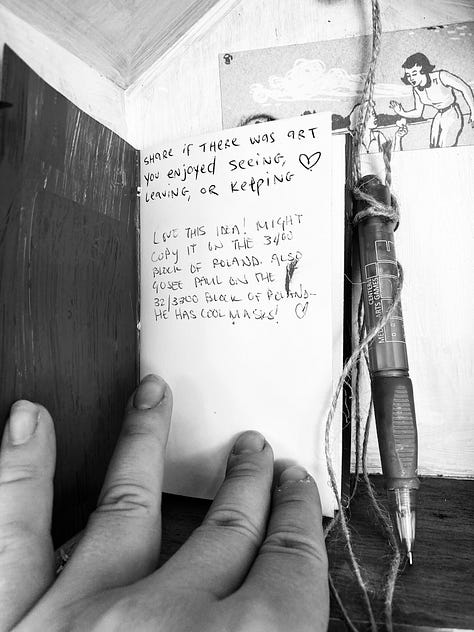 SHARE IF THERE WAS ART
YOU ENJOYED SEEING,
LEAVING, OR KEEPING ♡
LOVE THIS IDEA! MIGHT
COPY IT ON THE 3400
BLOCK OF POLAND. ALSO
GO SEE PAUL ON THE
32/3300 BLOCK OF POLAND-
HE HAS COOL MASKS! ♡
CENTER
ARTS GAMES